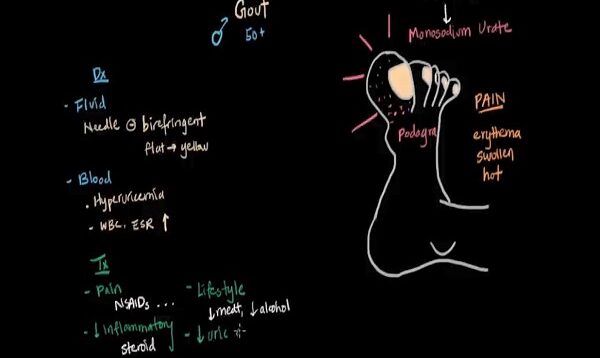 Gout
♂ 50+
Monosodium Urate
Dx
- Fluid
Needle ⊖ birefringent
flat → yellow
- Blood
• Hyperuricemia
- WBC, ESR ↑
Tx
- Pain
NSAIDs ...
- ↓ Inflammatory
steroid
- Lifestyle
↓ meat, ↓ alcohol
- ↓ Uric
Podogra
PAIN
erythema
swollen
hot